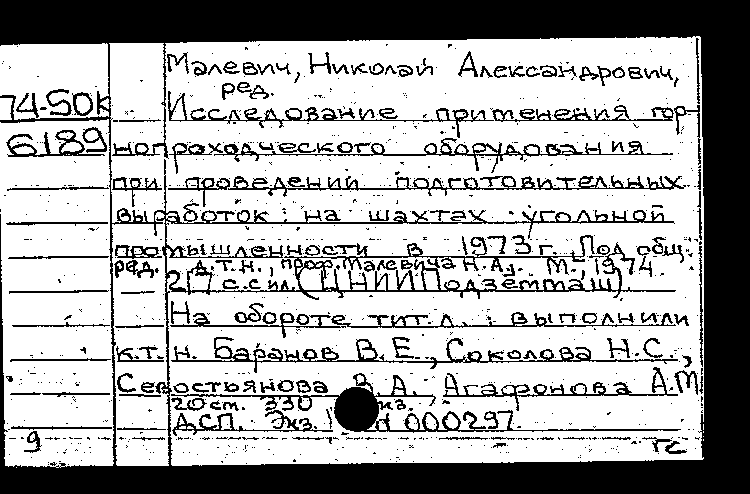 Малевич, Николай Александрович,
ред.
74-50К Исследование применения гор-
6189 нопроходческого оборудования
при проведении подготовительных
выработок на шахтах угольной
промышленности в 1973 г. Под общ.
ред. д.т.н., проф. Малевича Н.А. М., 1974.
217 с. с ил. (ЦНИИПодземмаш).
На обороте тит. л.: выполнили
к.т.н. Баранов В.Е., Соколова Н.С.,
Севостьянова В.А., Агафонова А.М
20 см. 330 кз.
ДСП. Экз. 000297.
9 гс